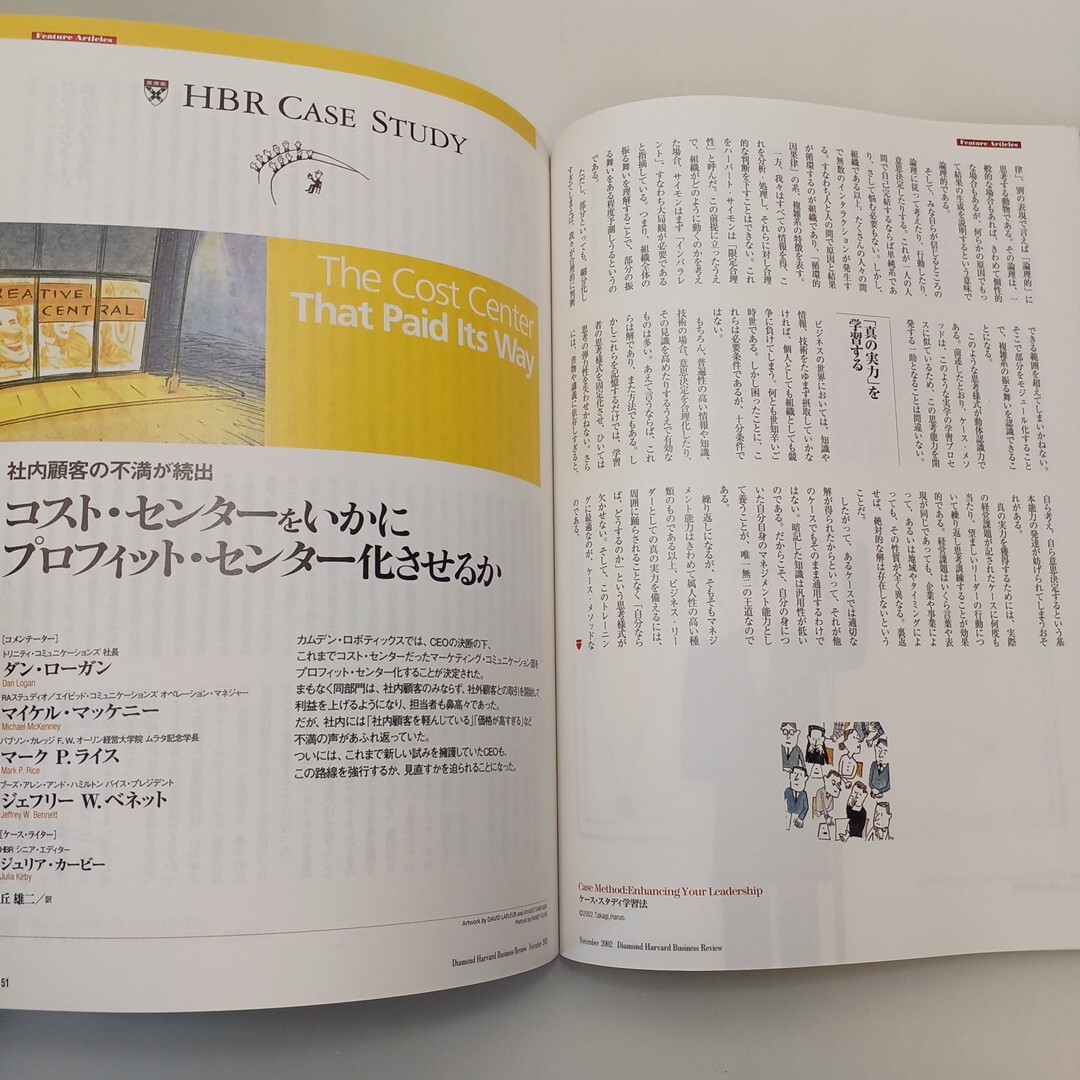 Feature Articles
HBR CASE STUDY
CREATIVE
CENTRAL
The Cost Center
That Paid Its Way
社内顧客の不満が続出
コスト・センターをいかに
プロフィット・センター化させるか
[コメンテーター]
トリニティ・コミュニケーションズ 社長
ダン・ローガン
Dan Logan
RAステュディオ/エイビッド・コミュニケーションズ オペレーション・マネジャー
マイケル・マッケニー
Michael McKenney
バブソン・カレッジ F. W. オーリン経営大学院 ムラタ記念学長
マーク P. ライス
Mark P. Rice
ブーズ・アレン・アンド・ハミルトン バイス・プレジデント
ジェフリー W. ベネット
Jeffrey W. Bennett
[ケース・ライター]
HBR シニア・エディター
ジュリア・カービー
Julia Kirby
丘 雄二/訳
カムデン・ロボティックスでは、CEOの決断の下、
これまでコスト・センターだったマーケティング・コミュニケーション部を
プロフィット・センター化することが決定された。
まもなく同部門は、社内顧客のみならず、社外顧客との取引を開始して
利益を上げるようになり、担当者も鼻高々であった。
だが、社内には「社内顧客を軽んじている」「価格が高すぎる」など
不満の声があふれ返っていた。
ついには、これまで新しい試みを擁護していたCEOも、
この路線を強行するか、見直すかを迫られることになった。
Artwork by DAVID LAFLEUR and
Portrait by
Diamond Harvard Business Review November 2002
51
Feature Articles
律」、別の表現で言えば「論理的」に
思考する動物である。その論理は、一
般的な場合もあれば、きわめて個性的
な場合もあるが、何らかの原因でもっ
て結果の生成を説明するという意味で
論理的である。
そして、みな自らが信じるところの
論理に従って考えたり、行動したり、
意思決定したりする。これが一人の人
間で自己完結するならば単純系であ
り、さして悩む必要もない。しかし、
組織である以上、たくさんの人々の間
で無数のインタラクションが発生す
る。すなわち人と人の間で原因と結果
が循環するのが組織であり、「循環的
因果律」の系、複雑系の特徴を表す。
一方、我々はすべての情報を得、こ
れを分析・処理し、それらに対し合理
的な判断を下すことはできない。これ
をハーバート・サイモンは「限定合理
性」と呼んだ。この前提に立ったうえ
で、組織がどのように動くのかを考え
た場合、サイモンはまず「インバラレ
ント」、すなわち大局観が必要である
と指摘している。つまり、組織全体の
振る舞いを理解することで、部分の振
る舞いをある程度予測しうるというの
である。
ただし、部分といっても、細分化し
すぎてしまえば、我々が合理的に判断
できる範囲を超えてしまいかねない。
そこで部分をモジュール化すること
で、複雑系の振る舞いを認識できるこ
とになる。
このような思考様式が動体認識力で
ある。前述したとおり、ケース・メソ
ッドは、このような実学の学習プロセ
スに似ているため、この思考能力を開
発する一助となることは間違いない。
「真の実力」を
学習する
ビジネスの世界においては、知識や
情報、技術をたゆまず摂取していかな
ければ、個人としても組織としても競
争に負けてしまう。何とも世知辛いご
時世である。しかし困ったことに、こ
れらは必要条件であるが、十分条件で
はない。
もちろん、普遍性の高い情報や知識、
技術の場合、意思決定を合理化したり、
その見識を高めたりするうえで有効な
ものは多い。あえて言うならば、これ
らは解であり、また方法でもある。し
かしこれらを記憶するだけでは、学習
者の思考様式を固定化させ、ひいては
思考の弾力性を失わせかねない。さら
には、書物や講義に依存しすぎると、
自ら考え、自ら意思決定するという基
本能力の発達が妨げられてしまうおそ
れがある。
真の実力を獲得するためには、実際
の経営課題が記されたケースに何度も
当たり、望ましいリーダーの行動につ
いて繰り返し思考訓練することが効果
的である。経営課題はいくら言葉や表
現が同じであっても、企業や事業によ
って、あるいは地域やタイミングによ
っても、その性質が全く異なる。裏返
せば、絶対的な解は存在しないという
ことだ。
したがって、あるケースでは適切な
解が得られたからといって、それが他
のケースでもそのまま通用するわけで
はない。暗記した知識は汎用性が低い
のである。だからこそ、自分の身につ
いた自分自身のマネジメント能力とし
て養うことが、唯一無二の王道なので
ある。
繰り返しになるが、そもそもマネジ
メント能力はきわめて属人性の高い種
類のものである以上、ビジネス・リー
ダーとしての真の実力を備えるには、
周囲に踊らされることなく「自分なら
ば、どうするのか」という思考様式が
欠かせない。そして、このトレーニン
グに最適なのが、ケース・メソッドな
のである。
Case Method:Enhancing Your Leadership
ケース・スタディ学習法
©2002 Takagi,Haruo.
November 2002 Diamond Harvard Business Review